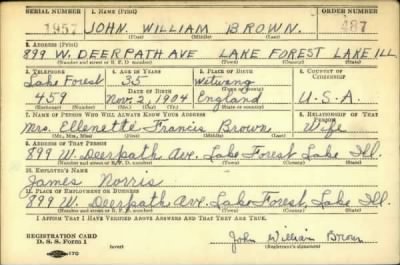 SERIAL NUMBER 1. NAME (Print) ORDER NUMBER
1957 JOHN WILLIAM BROWN. 487
(First) (Middle) (Last)
2. ADDRESS (Print)
899 W. DEERPATH AVE LAKE FOREST LAKE ILL.
(Number and street or R. F. D. number) (Town) (County) (State)
3. TELEPHONE 4. AGE IN YEARS 5. PLACE OF BIRTH 6. COUNTRY OF CITIZENSHIP
Lake Forest 35
DATE OF BIRTH (Town or county)
459 Nov. 3, 1904 England U.S.A.
(Exchange) (Number) (Mo.) (Day) (Yr.) (State or country)
7. NAME OF PERSON WHO WILL ALWAYS KNOW YOUR ADDRESS 8. RELATIONSHIP OF THAT PERSON
Mrs. Ellenette Francis Brown Wife
(Mr., Mrs., Miss) (First) (Middle) (Last)
9. ADDRESS OF THAT PERSON
899 W. Deerpath Ave. Lake Forest, Lake Ill.
(Number and street or R. F. D. number) (Town) (County) (State)
10. EMPLOYER'S NAME
James Norris
11. PLACE OF EMPLOYMENT OR BUSINESS
899 W. Deerpath Ave. Lake Forest, Lake Ill.
(Number and street or R. F. D. number) (Town) (County) (State)
I AFFIRM THAT I HAVE VERIFIED ABOVE ANSWERS AND THAT THEY ARE TRUE.
REGISTRATION CARD
D. S. S. Form 1 (over) John William Brown
(Registrant's signature)